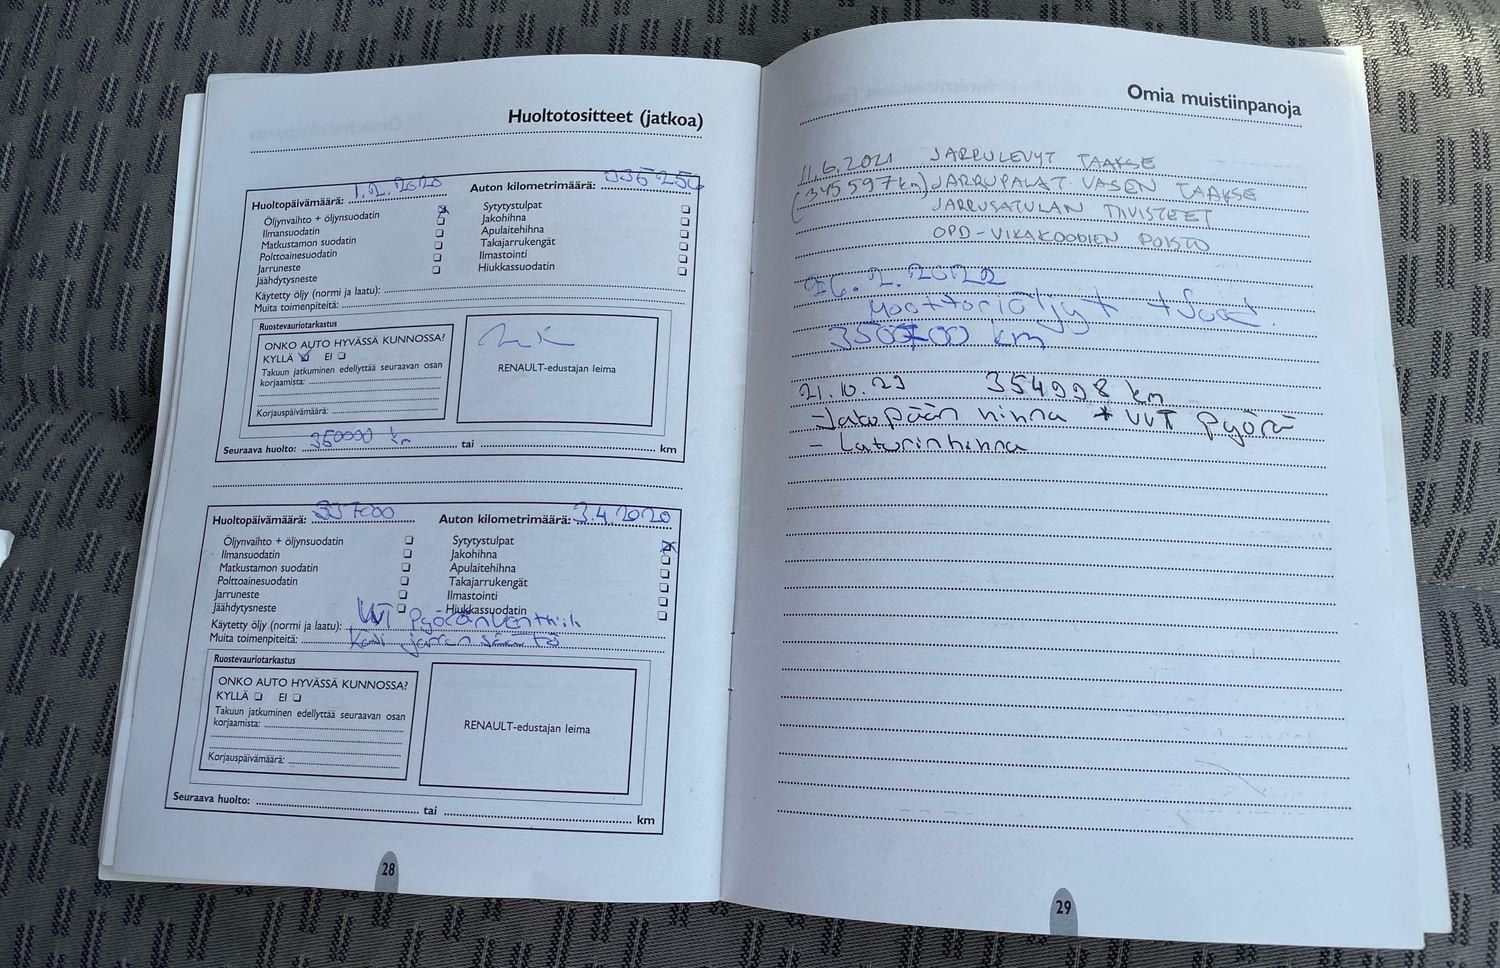 Huoltotositteet (jatkoa)
Huoltopäivämäärä: 1.2.2020 Auton kilometrimäärä: 336254
Öljynvaihto + öljynsuodatin Sytytystulpat
Ilmansuodatin Jakohihna
Matkustamon suodatin Apulaitehihna
Polttoainesuodatin Takajarrukengät
Jarruneste Ilmastointi
Jäähdytysneste Hiukkassuodatin
Käytetty öljy (normi ja laatu):
Muita toimenpiteitä:
Ruostevauriotarkastus
ONKO AUTO HYVÄSSÄ KUNNOSSA?
KYLLÄ EI
Takuun jatkuminen edellyttää seuraavan osan
korjaamista:
Korjauspäivämäärä:
RENAULT-edustajan leima
Seuraava huolto: 350000 km tai km
Huoltopäivämäärä: 337000 Auton kilometrimäärä: 3.4.2020
Öljynvaihto + öljynsuodatin Sytytystulpat
Ilmansuodatin Jakohihna
Matkustamon suodatin Apulaitehihna
Polttoainesuodatin Takajarrukengät
Jarruneste Ilmastointi
Jäähdytysneste Hiukkassuodatin
Käytetty öljy (normi ja laatu): VVT pyöränventtiili
Muita toimenpiteitä: käsi jarrun säätö
Ruostevauriotarkastus
ONKO AUTO HYVÄSSÄ KUNNOSSA?
KYLLÄ EI
Takuun jatkuminen edellyttää seuraavan osan
korjaamista:
Korjauspäivämäärä:
RENAULT-edustajan leima
Seuraava huolto: tai km
28
Omia muistiinpanoja
11.6.2021 JARRULEVYT TAAKSE
(345597km) JARRUPALAT VASEN TAAKSE
JARRUSATULAN TIIVISTEET
OPD-VIKAKOODIEN POISTO
26.2.2022
Moottoriöljyt + suod.
350700 km
21.10.23 354998 km
- Jakopään hihna + VVT pyörä
- Laturinhihna
29